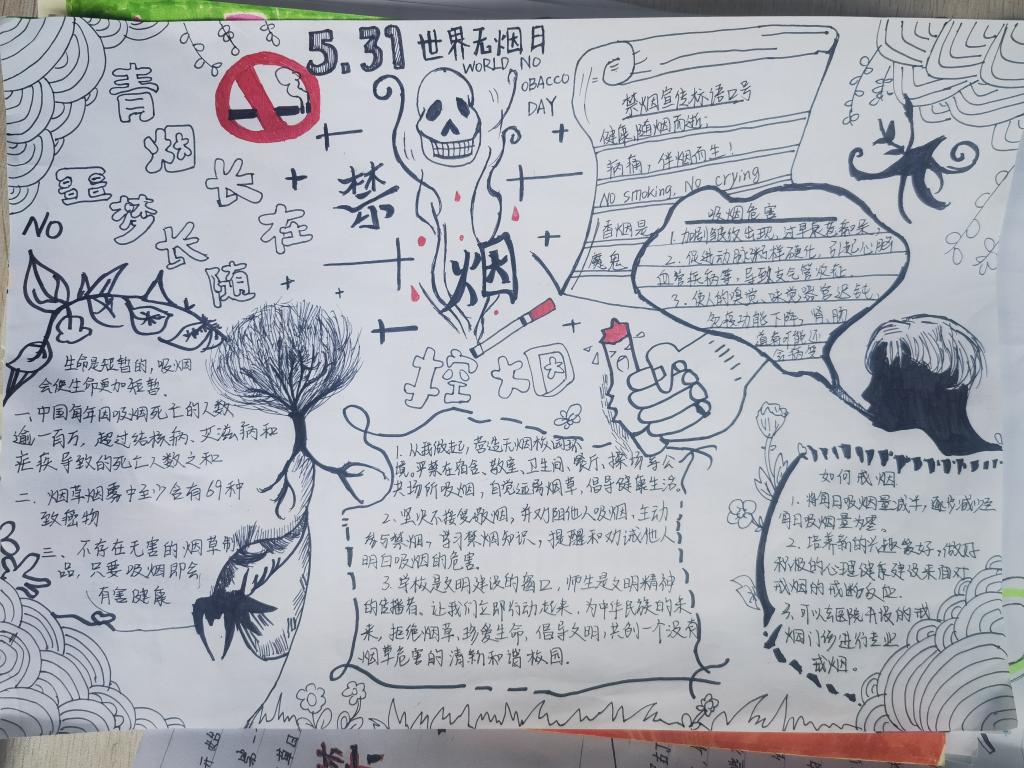 5.31 世界无烟日
WORLD NO
TOBACCO
DAY
青
烟
长
在
噩
梦
长
随
NO
禁
烟
控烟
禁烟宣传标语口号
健康,随烟而逝;
病痛,伴烟而生!
No smoking, No crying
香烟是
魔鬼
吸烟危害
1.加剧皱纹出现,过早衰老看来,
2.促进动脉粥样硬化,引起心脑
血管疾病等,导致支气管炎症
3.使人的嗅觉、味觉器官迟钝,
免疫功能下降,肾助
生命是短暂的,吸烟
会使生命更加短暂.
一、中国每年因吸烟死亡的人数
逾一百万,超过结核病、艾滋病和
疟疾导致的死亡人数之和
二、烟草烟雾中至少会有69种
致癌物
三、不存在无害的烟草制
品,只要吸烟即会
有害健康
1.从我做起,营造无烟校园环
境,严禁在宿舍、教室、卫生间、餐厅、操场等公
共场所吸烟,自觉远离烟草,倡导健康生活.
2.坚决不接受敬烟,并劝阻他人吸烟、主动
参与禁烟,学习禁烟知识、提醒和劝诫他人
明白吸烟的危害.
3.学校是文明建设的窗口,师生是文明精神
的传播者、让我们立即行动起来、为中华民族的未
来,拒绝烟草、珍爱生命,倡导文明,共创一个没有
烟草危害的清新和谐校园.
如何戒烟
1.将每日吸烟量减半,逐步减少至
每日吸烟量为零.
2.培养新的兴趣爱好,做好
积极的心理健康建设来面对
戒烟的戒断反应.
3.可以去医院开设的戒
烟门诊进行专业
戒烟.